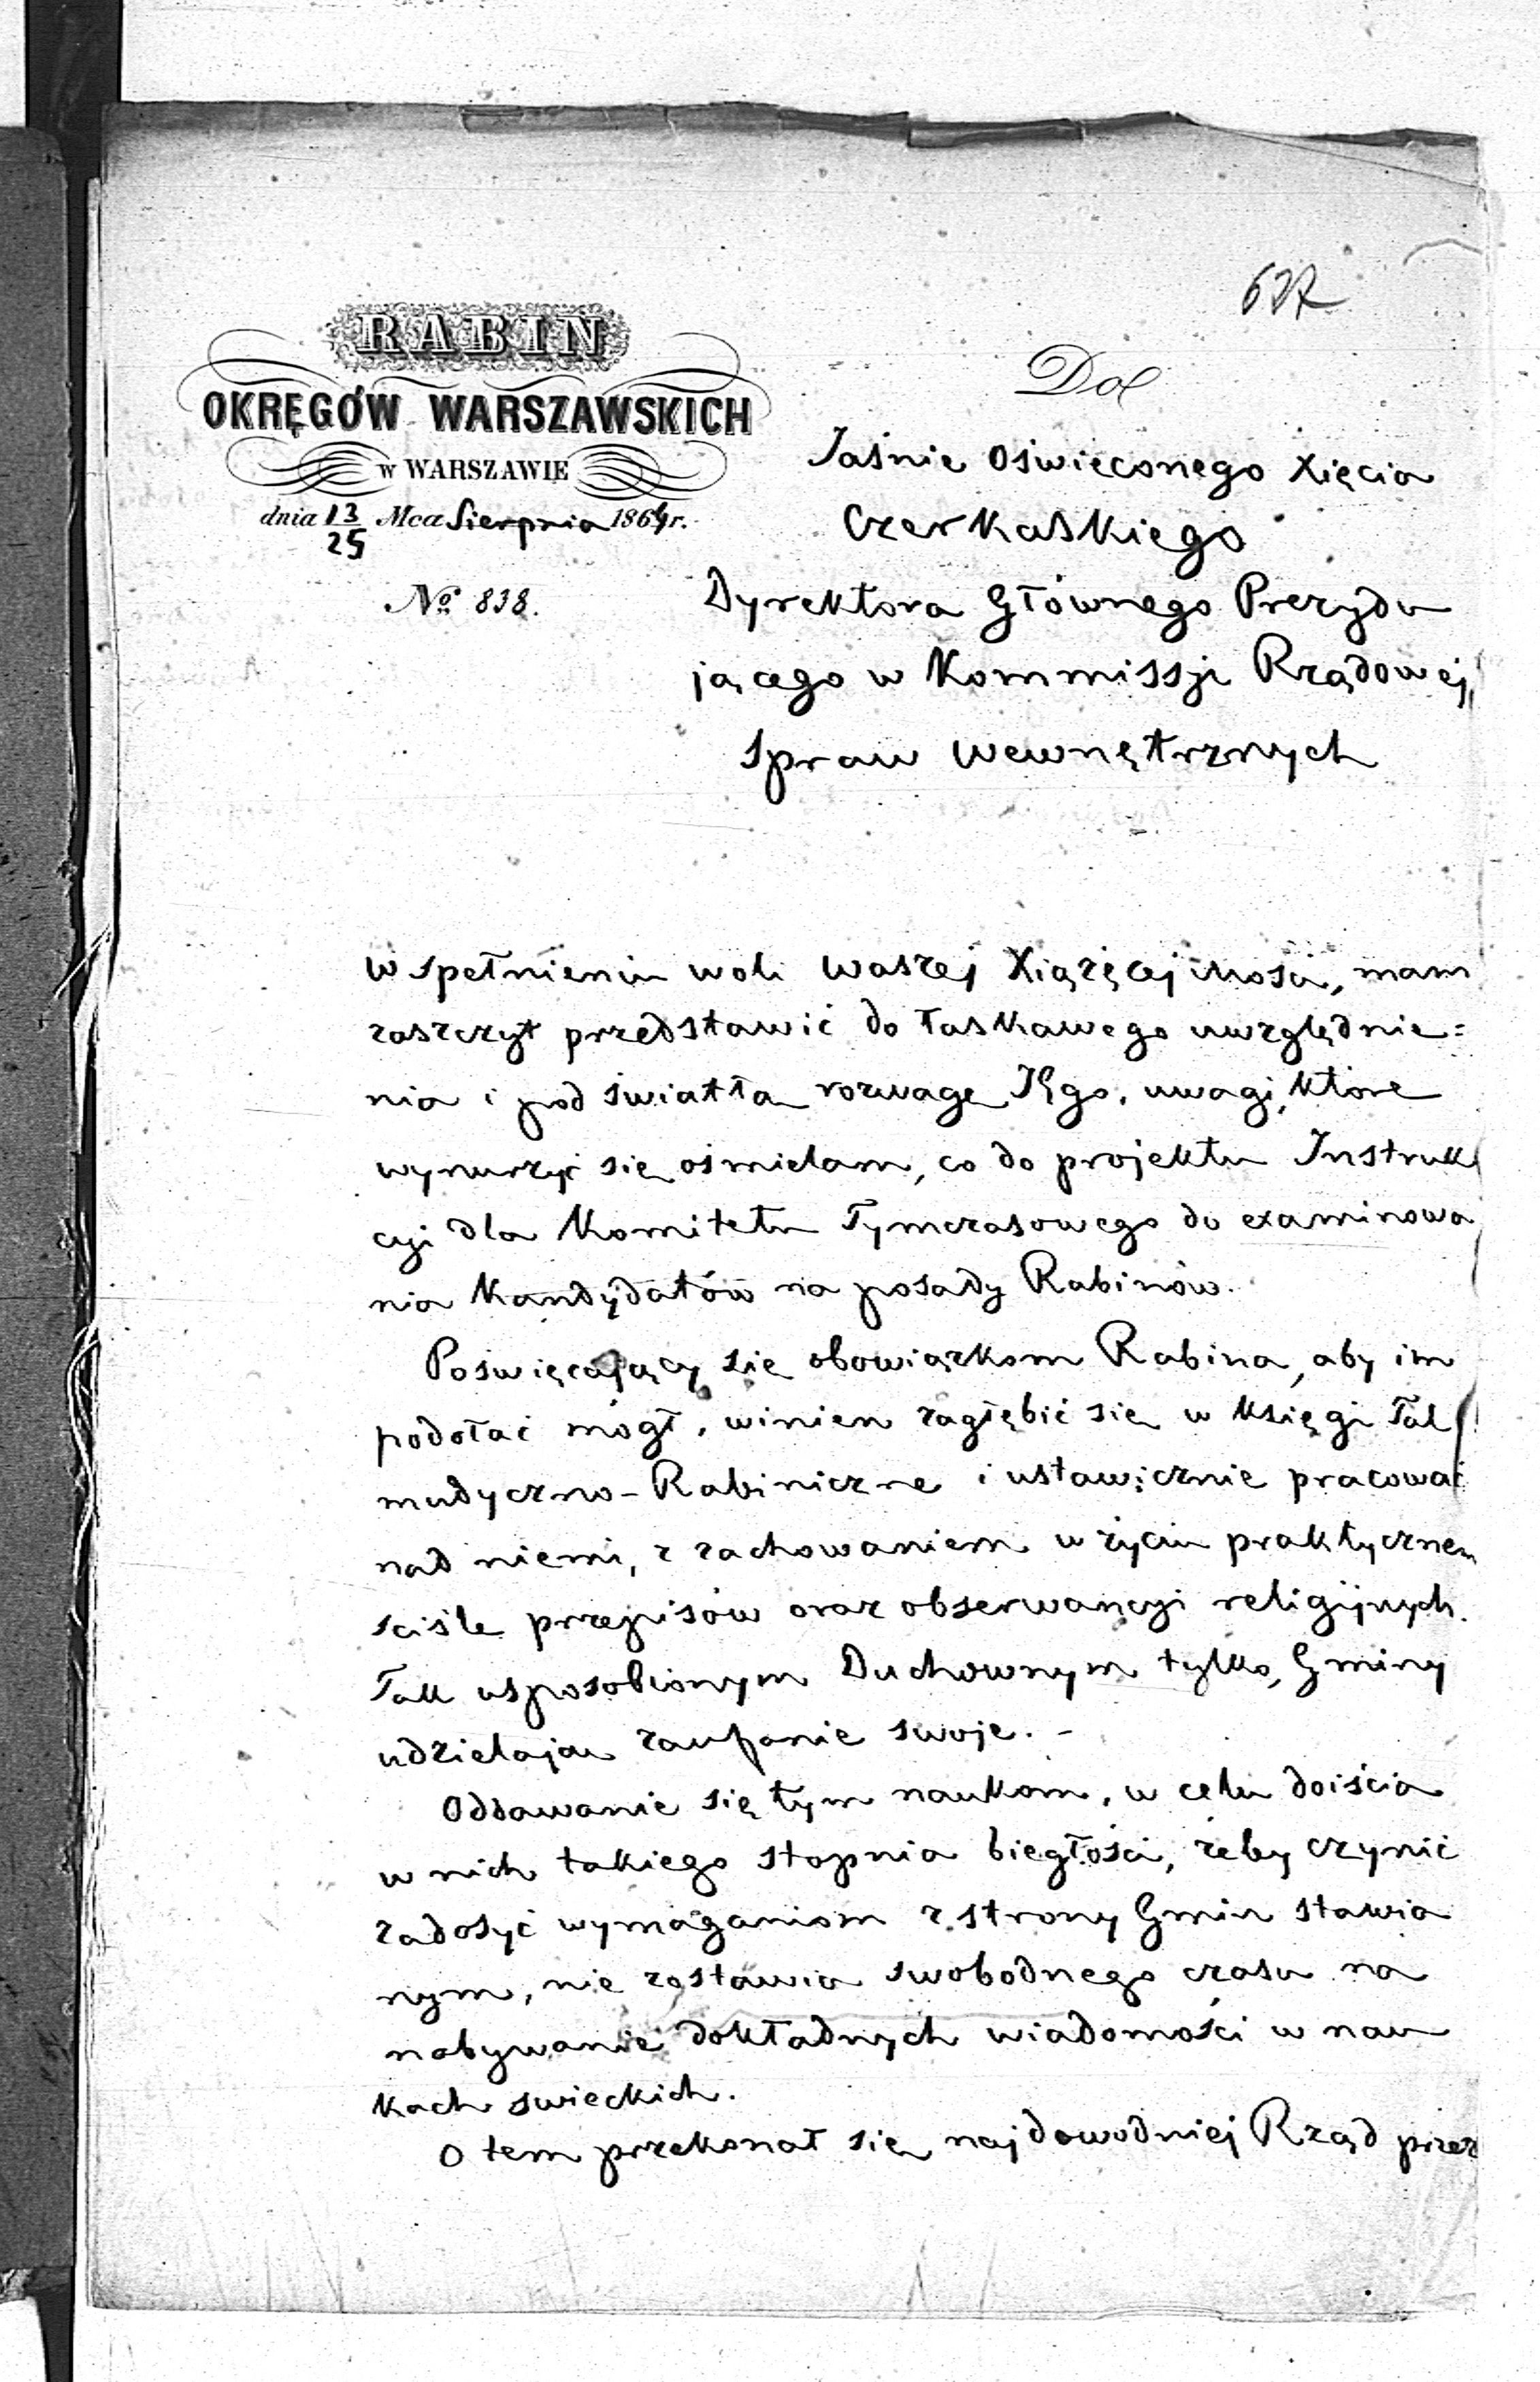 627
RABIN
OKRĘGÓW WARSZAWSKICH
w WARSZAWIE
dnia 13/25 Mca Sierpnia 1864 r.
No 838.
Do
Jaśnie Oświeconego Xięcia
Czerkaskiego
Dyrektora Głównego Prezydu
jącego w Kommissji Rządowej
Spraw Wewnętrznych
W spełnieniu woli Waszej Xiążęcej Mości, mam
zaszczyt przedstawić do łaskawego uwzględnie=
nia i pod światła rozwagę Jego, uwagi, które
wynurzyć się ośmielam, co do projektu Instruk
cyi dla Komitetu Tymczasowego do examinowa
nia Kandydatów na posady Rabinów.
Poświęcający się obowiązkom Rabina, aby im
podołać mógł, winien zagłębić się w księgi Tal
mudyczno-Rabiniczne i ustawicznie pracować
nad niemi, z zachowaniem w życiu praktycznem
ściśle przepisów oraz obserwancyi religijnych.
Tak usposobionym Duchownym tylko, Gminy
udzielają zaufanie swoje. -
Oddawanie się tym naukom, w celu doiścia
w nich takiego stopnia biegłości, żeby czynić
zadosyć wymaganiom z strony Gmin stawia
nym, nie zostawia swobodnego czasu na
nabywanie dokładnych wiadomości w nau
kach swieckich.
O tem przekonał się najdowodniej Rząd przez